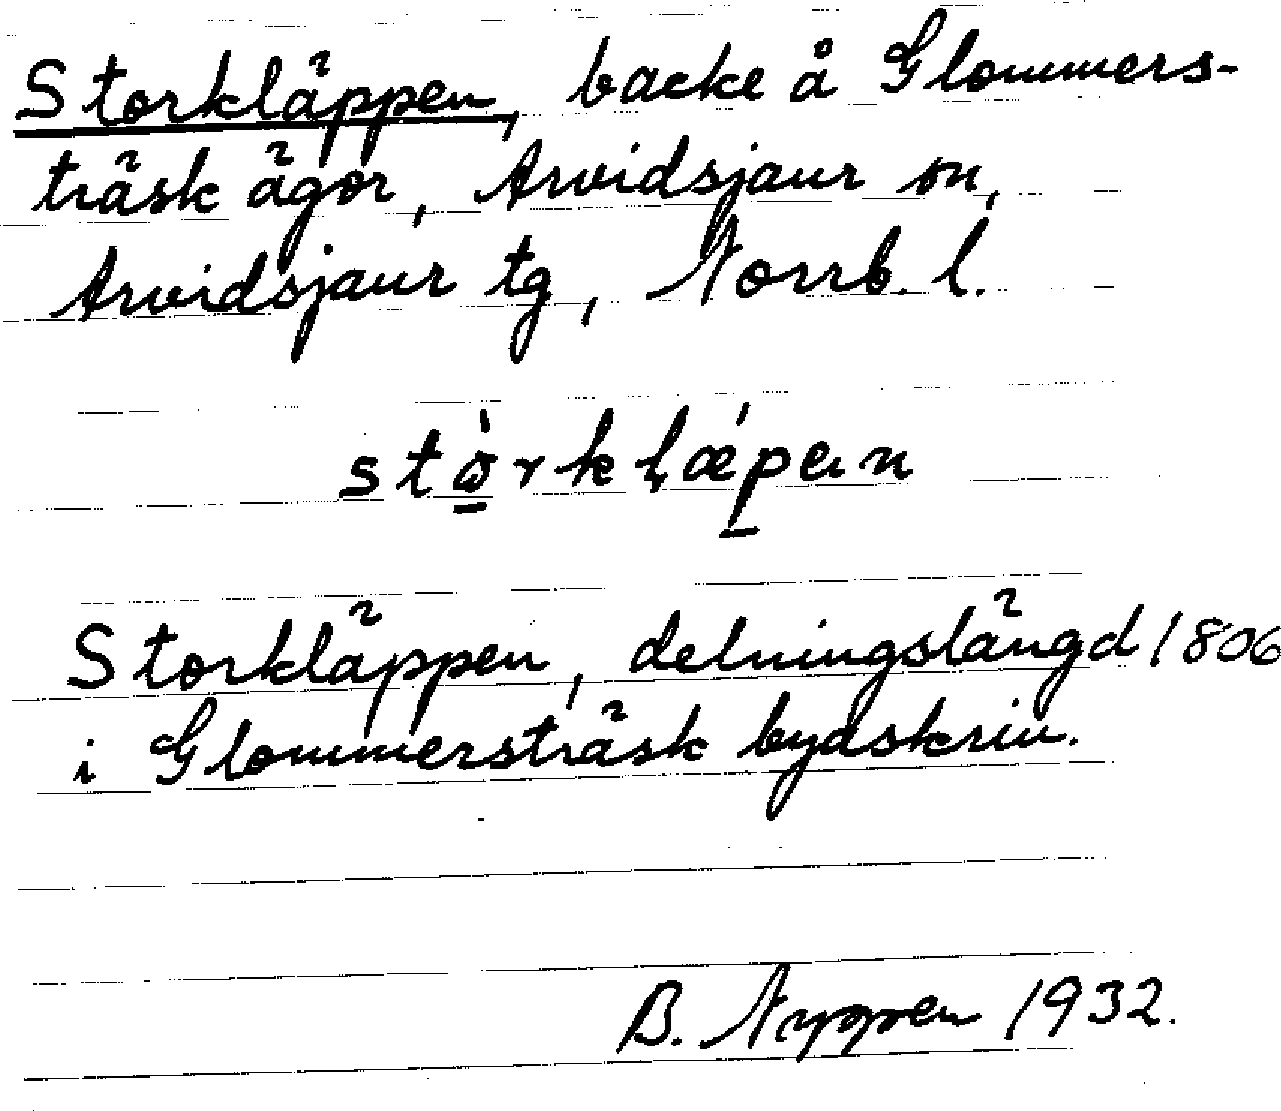 Storkläppen, backe å Glommers-
träsk ägor, Arvidsjaur sn,
Arvidsjaur tg, Norrb. l.
Storkläppen, delningslängd 1806
i Glommersträsk bydskriv.
B. 1932.